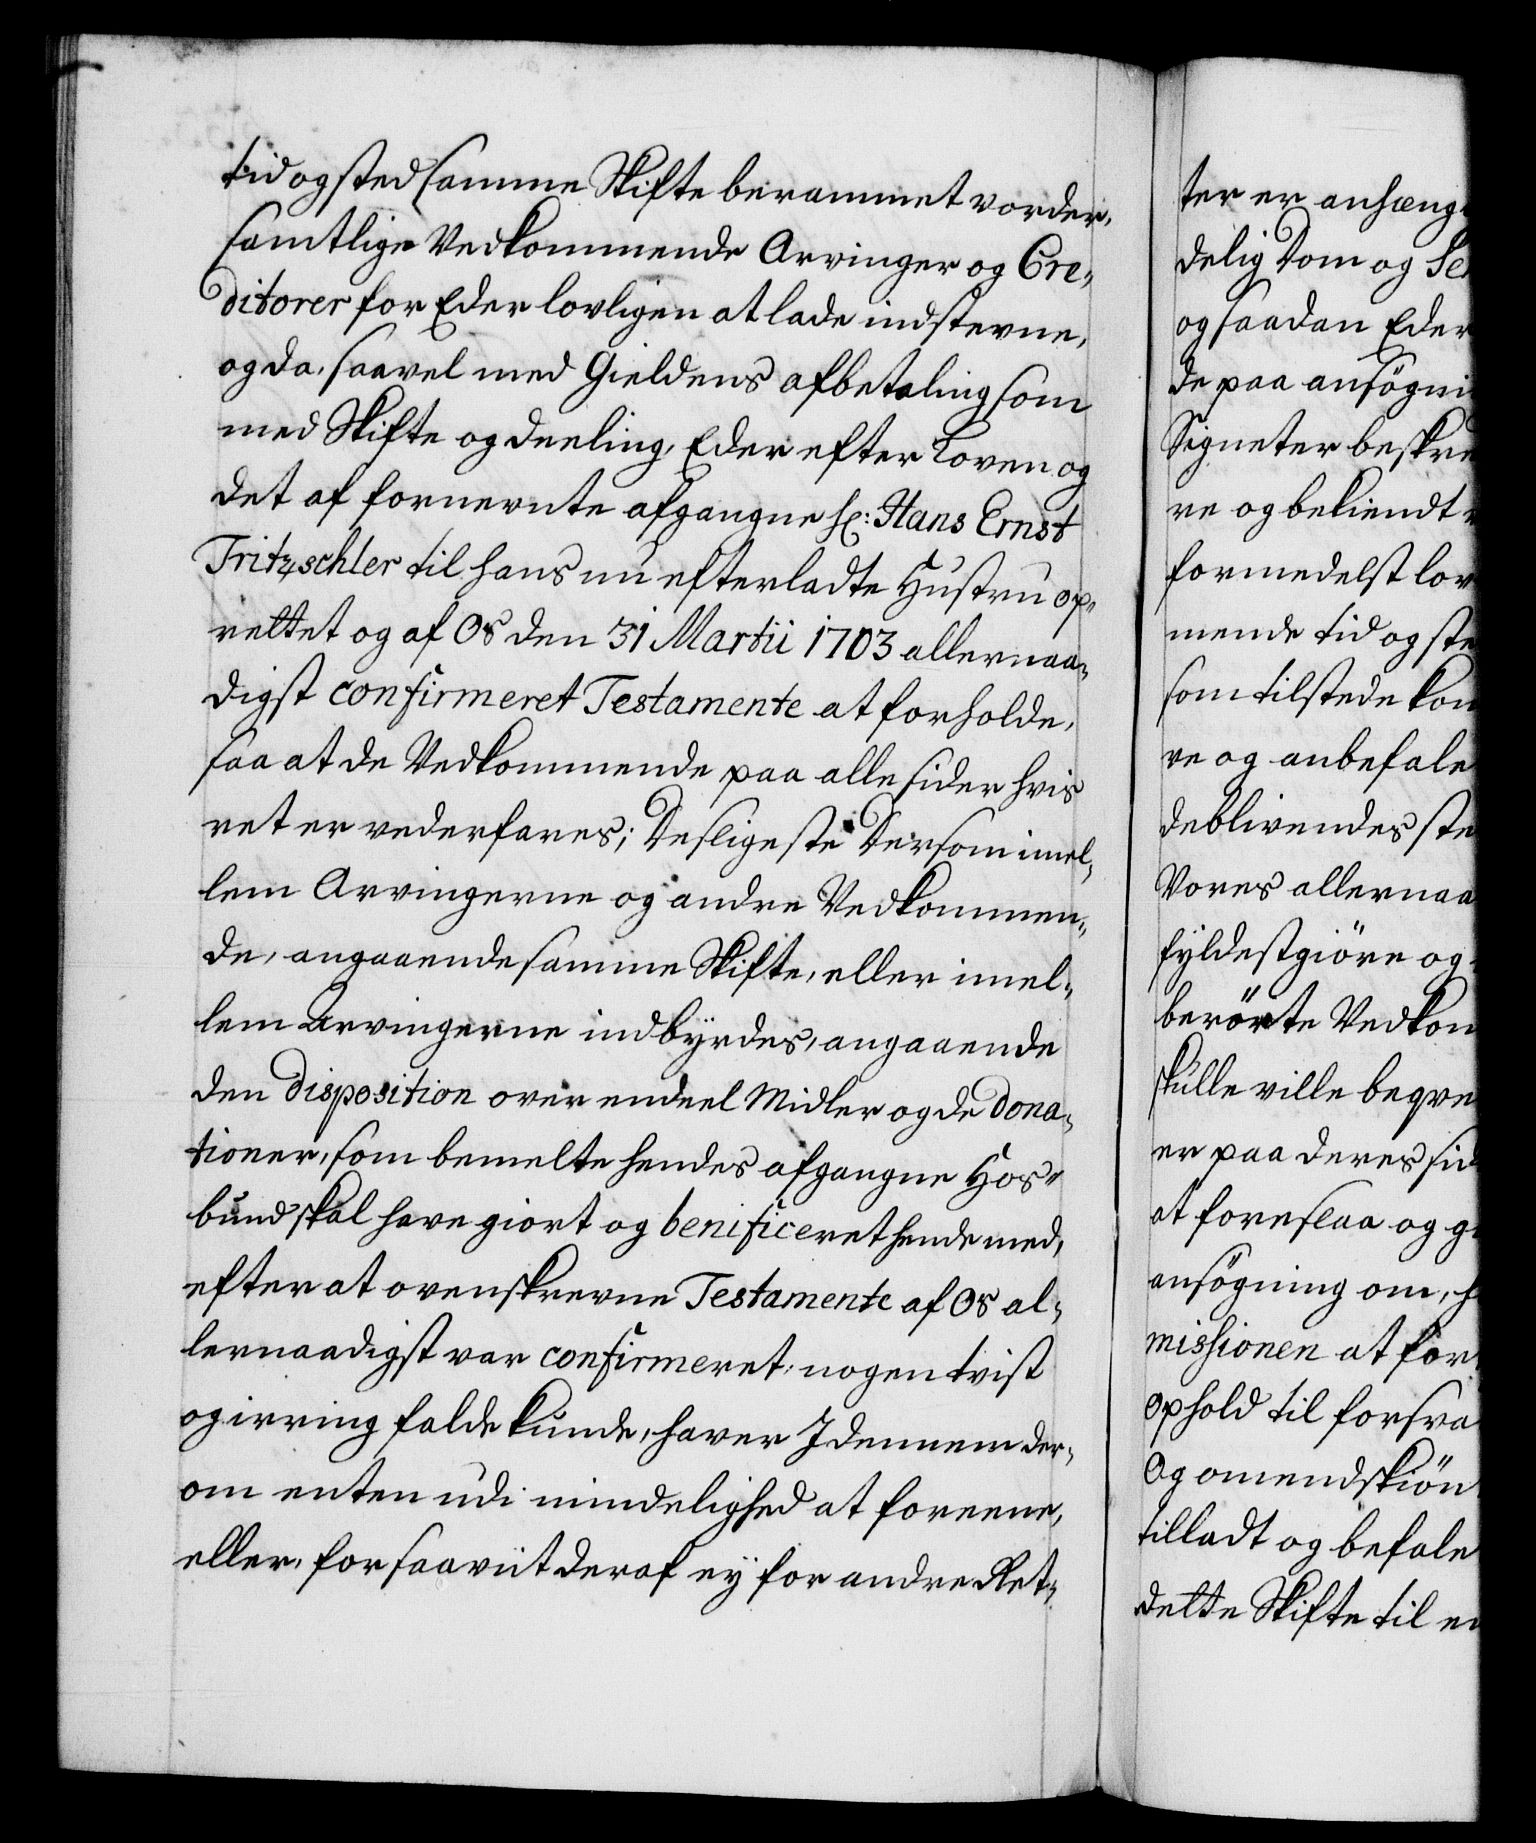 tid og sted samme Skifte berammet vorder,
samtlige Vedkommende Arvinger og Cre,,
ditorer for Eder lovligen at lade indstevne,
og da, saavel med Gieldens afbetaling som
med Skifte og deeling, Eder efter Loven og
det af fornevnte afgangne Hans Ernst
Tritzschler til hans nu efterladte Hustru op,,
rettet og af Os den 31 Martii 1703 allernaa,,
digst confirmeret Testamente at forholde,
saa at de Vedkommende paa alle sider hvis
ret er vederfares; Desligeste Dersom imel,,
lem Arvingerne og andre Vedkommen,,
de, angaaende samme Skifte, eller imel,,
lem Arvingerne indbÿrdes, angaaende
den disposition over endeel Midler og de dona,,
tioner, som bemelte hendes afgangne Hos,,
bund skal have giort og benificeret hende med,
efter at ovenskrevne Testamente af Os al,,
lernaadigst var confirmeret, nogen tvist
og irring falde kunde, haver I dennem der,,
om enten udi mindelighed at foreene,
eller, forsaaviit deraf eÿ for andre Ret,,
ter er anhæng
delig Dom og Se
og saadan Eder
de paa ansögni
Signeter beskre
re og bekiendt
formedelst lov
mende tid og ste
som tilstede kom
re og anbefale
deblivendes ste
Vores allernaa
fÿldestgiöre og
berörte Vedkom
skulle ville beqve
er paa deres sid
at foreslaa og g
ansögning om, h
missionen at for
ophold til forsva
Og omendskiön
tilladt og befale
dette Skifte til en